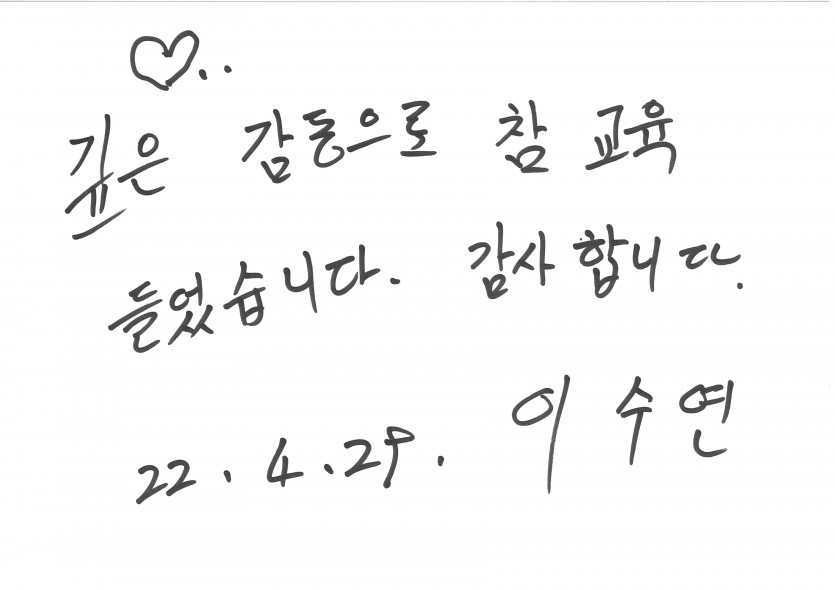 ♡..
깊은 감동으로 참 교육
들었습니다. 감사합니다.
22.4.29. 이수연